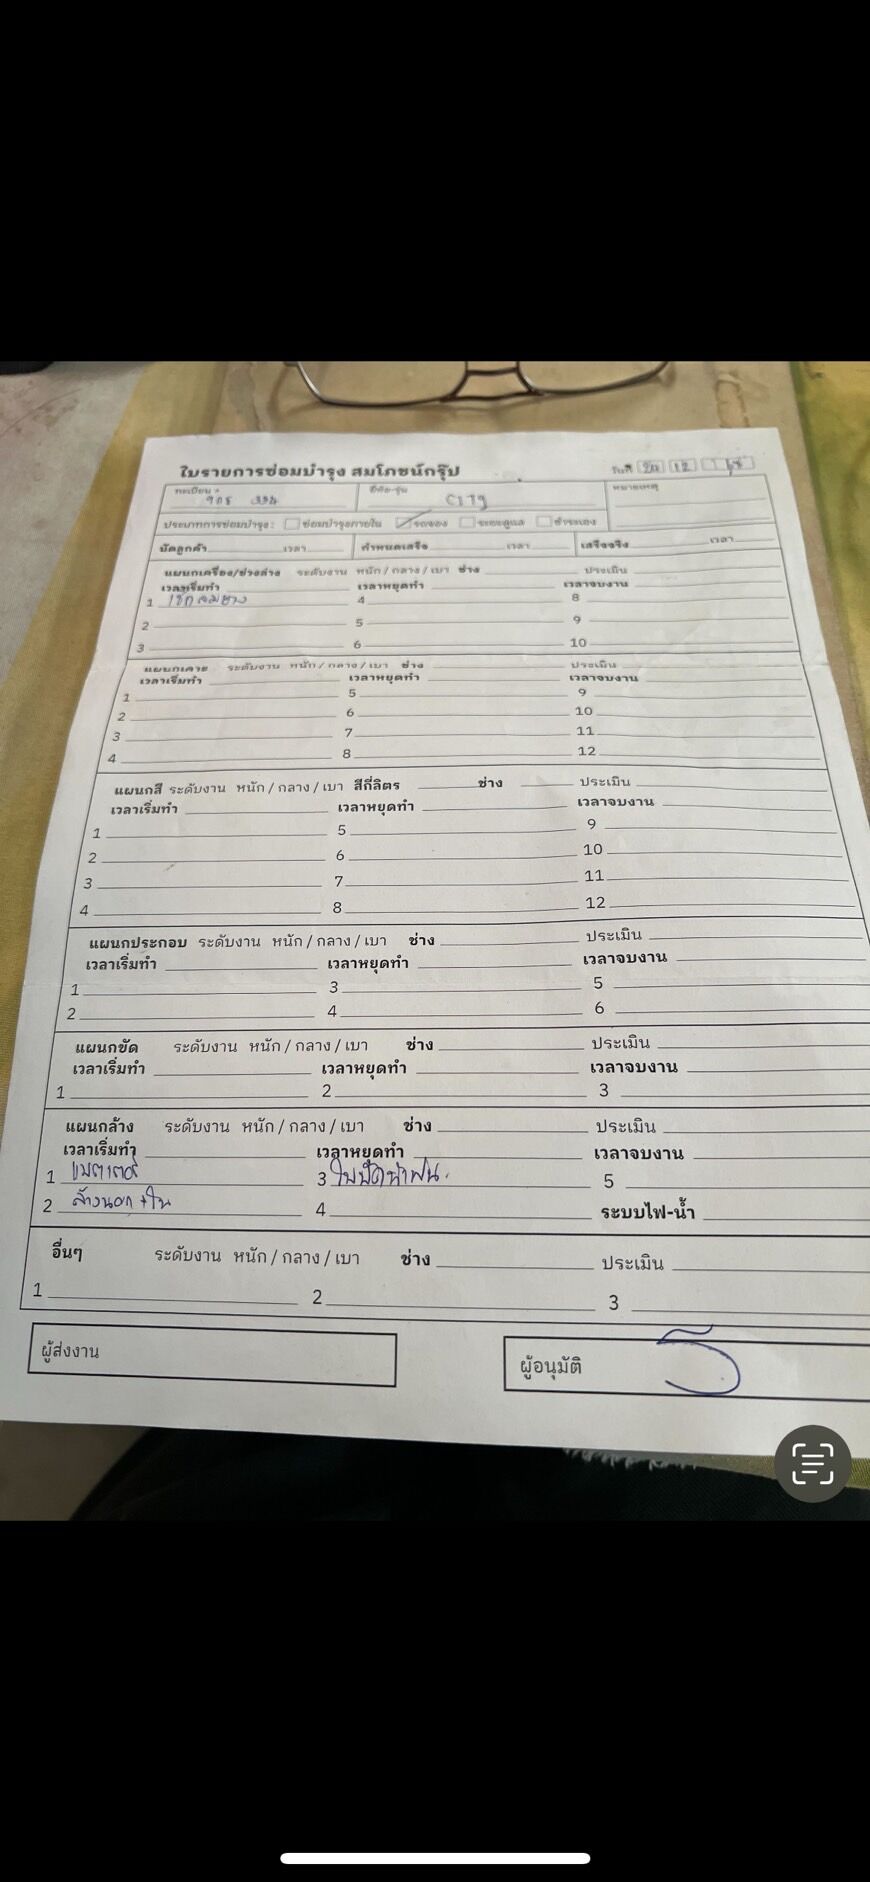 ใบรายการซ่อมบำรุง สมโภชน์กรุ๊ป วันที่ 12
ทะเบียน ยี่ห้อ-รุ่น CITY หมายเหตุ
ประเภทการซ่อมบำรุง: ซ่อมบำรุงภายใน รถจอง ระยะดูแล ชำระเอง
นัดลูกค้า เวลา กำหนดเสร็จ เวลา เสร็จจริง เวลา
แผนกเครื่อง/ช่วงล่าง ระดับงาน หนัก / กลาง / เบา ช่าง ประเมิน
เวลาเริ่มทำ เวลาหยุดทำ เวลาจบงาน
1 เช็กลมยาง 4 8
2 5 9
3 6 10
แผนกเคาะ ระดับงาน หนัก / กลาง / เบา ช่าง ประเมิน
เวลาเริ่มทำ เวลาหยุดทำ เวลาจบงาน
1 5 9
2 6 10
3 7 11
4 8 12
แผนกสี ระดับงาน หนัก / กลาง / เบา สีกี่ลิตร ช่าง ประเมิน
เวลาเริ่มทำ เวลาหยุดทำ เวลาจบงาน
1 5 9
2 6 10
3 7 11
4 8 12
แผนกประกอบ ระดับงาน หนัก / กลาง / เบา ช่าง ประเมิน
เวลาเริ่มทำ เวลาหยุดทำ เวลาจบงาน
1 3 5
2 4 6
แผนกขัด ระดับงาน หนัก / กลาง / เบา ช่าง ประเมิน
เวลาเริ่มทำ เวลาหยุดทำ เวลาจบงาน
1 2 3
แผนกล้าง ระดับงาน หนัก / กลาง / เบา ช่าง ประเมิน
เวลาเริ่มทำ เวลาหยุดทำ เวลาจบงาน
1 แบตเตอรี่ 3 ใบปัดน้ำฝน 5
2 ล้างนอก+ใน 4 ระบบไฟ-น้ำ
อื่นๆ ระดับงาน หนัก / กลาง / เบา ช่าง ประเมิน
1 2 3
ผู้ส่งงาน ผู้อนุมัติ